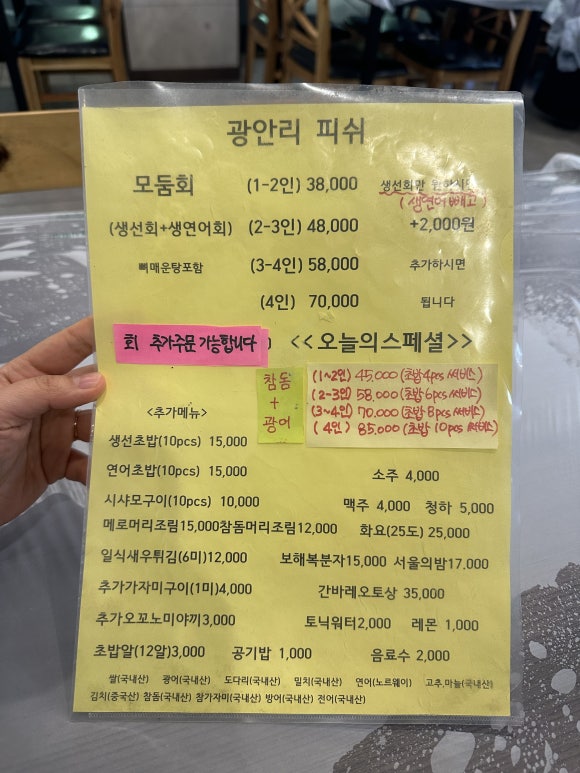 광안리 피쉬
모둠회 (1-2인) 38,000 생선회만 원하시면
(생연어 빼고)
(생선회+생연어회) (2-3인) 48,000 +2,000원
뼈매운탕포함 (3-4인) 58,000 추가하시면
(4인) 70,000 됩니다
회 추가주문 가능합니다 ) <<오늘의스페셜>>
참돔 + 광어
(1~2인) 45,000 (초밥 4pcs 서비스)
(2-3인) 58,000 (초밥 6pcs 서비스)
(3~4인) 70,000 (초밥 8pcs 서비스)
( 4인) 85,000 (초밥 10pcs 서비스)
<추가메뉴>
생선초밥(10pcs) 15,000
연어초밥(10pcs) 15,000 소주 4,000
시샤모구이(10pcs) 10,000 맥주 4,000 청하 5,000
메로머리조림15,000참돔머리조림12,000 화요(25도) 25,000
일식새우튀김(6미)12,000 보해복분자15,000 서울의밤17,000
추가가자미구이(1미)4,000 간바레오토상 35,000
추가오꼬노미야끼3,000 토닉워터2,000 레몬 1,000
초밥알(12알)3,000 공기밥 1,000 음료수 2,000
쌀(국내산) 광어(국내산) 도다리(국내산) 밀치(국내산) 연어(노르웨이) 고추,마늘(국내산)
김치(중국산) 참돔(국내산) 참가자미(국내산) 방어(국내산) 전어(국내산)